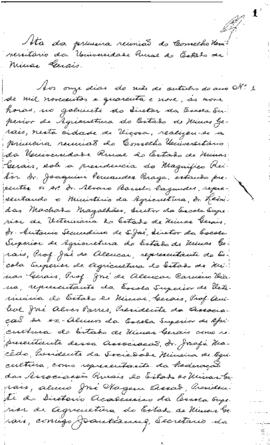 1
Ata da primeira reunião do Conselho Uni-
versitário da Universidade Rural do Estado de
Minas Gerais.
Aos onze dias do mês de outubro do ano Nº 1
de mil novecentos e quarenta e nove, às nove
horas, no gabinete do Diretor da Escola Su-
perior de Agricultura do Estado de Minas Ge-
rais, nesta cidade de Viçosa, realizou-se a
primeira reunião do Conselho Universitário
da Universidade Rural do Estado de Minas
Gerais, sob a presidência do Magnífico Rei-
tor Dr. Joaquim Fernandes Braga, estando pre-
sentes os Dr. Alvaro Barcelos Fagundes, repre-
sentando o Ministério da Agricultura, Dr.
Machado Magalhães, Diretor da Escola Supe-
rior de Veterinária do Estado de Minas Gerais,
Dr. Antonio Secundino de S. José, Diretor da Escola
Superior de Agricultura do Estado de Minas Ge-
rais, Prof. José de Alencar, representante da Es-
cola Superior de Agricultura do Estado de Mi-
nas Gerais, Prof. José de Alencar Carneiro Via-
na, representante da Escola Superior de Vete-
rinária do Estado de Minas Gerais, Prof. Aní-
bal Alves Torres, Presidente da Associa-
ção de ex-Alunos da Escola Superior de Agri-
cultura do Estado de Minas Gerais como re-
presentante dessa Associação, Dr. Josafá Ma-
cêdo, Presidente da Sociedade Mineira de Agri-
cultura, como representante da Federação
das Associações Rurais do Estado de Minas Ge-
rais, aluno José, Presiden-
te do Diretório Acadêmico da Escola Supe-
rior de Agricultura do Estado de Minas Ge-
rais, comigo, Secretário da